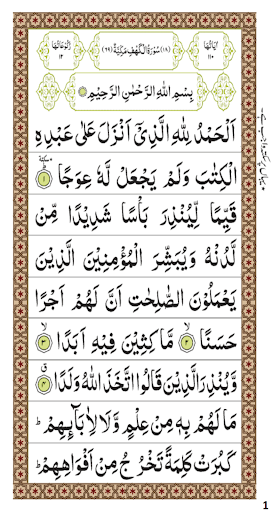 اٰیَاتُهَا ١١٠ (١٨) سُوْرَةُ الْكَهْفِ مَكِّیَّةٌ (٦٩) رُكُوْعَاتُهَا ١٢
بِسْمِ اللّٰهِ الرَّحْمٰنِ الرَّحِیْمِ
اَلْحَمْدُ لِلّٰهِ الَّذِیْۤ اَنْزَلَ عَلٰی عَبْدِهِ
الْكِتٰبَ وَلَمْ یَجْعَلْ لَّهٗ عِوَجًا ١ سكتة
قَیِّمًا لِّیُنْذِرَ بَاْسًا شَدِیْدًا مِّنْ
لَّدُنْهُ وَیُبَشِّرَ الْمُؤْمِنِیْنَ الَّذِیْنَ
یَعْمَلُوْنَ الصّٰلِحٰتِ اَنَّ لَهُمْ اَجْرًا
حَسَنًا ٢ۙ مَّاكِثِیْنَ فِیْهِ اَبَدًا ٣ۙ
وَّیُنْذِرَ الَّذِیْنَ قَالُوا اتَّخَذَ اللّٰهُ وَلَدًا ٤ۗ
مَا لَهُمْ بِهٖ مِنْ عِلْمٍ وَّلَا لِاٰبَآىِٕهِمْ ؕ
كَبُرَتْ كَلِمَةً تَخْرُجُ مِنْ اَفْوَاهِهِمْ ؕ
1